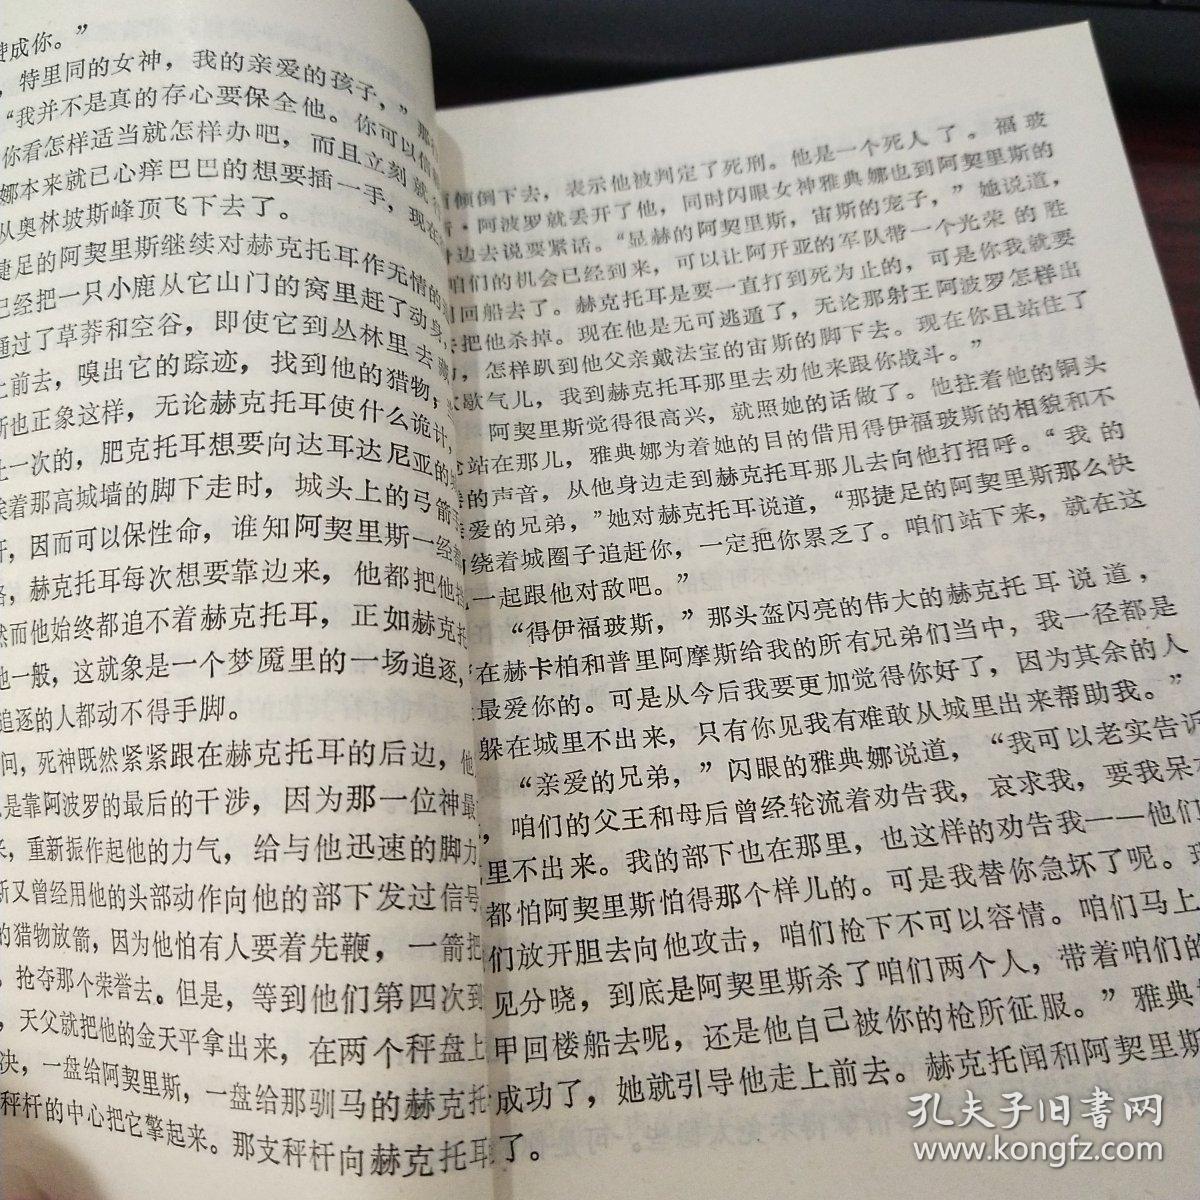 赞成你。”
，特里同的女神，我的亲爱的孩子，”那
“我并不是真的存心要保全他。你可以信
你看怎样适当就怎样办吧，而且立刻就
娜本来就已心痒巴巴的想要插一手，现在
从奥林坡斯峰顶飞下去了。
捷足的阿契里斯继续对赫克托耳作无情的
已经把一只小鹿从它山门的窝里赶了动身，
通过了草莽和空谷，即使它到丛林里去
上前去，嗅出它的踪迹，找到他的猎物；
斯也正象这样，无论赫克托耳使什么诡计，
止一次的，肥克托耳想要向达耳达尼亚的
挨着那高城墙的脚下走时，城头上的弓箭
开，因而可以保性命，谁知阿契里斯一经
路，赫克托耳每次想要靠边来，他都把他
然而他始终都追不着赫克托耳，正如赫克托
他一般，这就象是一个梦魇里的一场追逐，
追逐的人都动不得手脚。
问，死神既然紧紧跟在赫克托耳的后边，他
是靠阿波罗的最后的干涉，因为那一位神最
来，重新振作起他的力气，给与他迅速的脚力
斯又曾经用他的头部动作向他的部下发过信号
的猎物放箭，因为他怕有人要着先鞭，一箭把
，抢夺那个荣誉去。但是，等到他们第四次到
，天父就把他的金天平拿出来，在两个秤盘上
决，一盘给阿契里斯，一盘给那驯马的赫克托
秤杆的中心把它擎起来。那支秤杆向赫克托耳
倾倒下去，表示他被判定了死刑。他是一个死人了。福玻
·阿波罗就丢开了他，同时闪眼女神雅典娜也到阿契里斯的
身边去说要紧话。“显赫的阿契里斯，宙斯的宠子，”她说道，
咱们的机会已经到来，可以让阿开亚的军队带一个光荣的胜
回船去了。赫克托耳是要一直打到死为止的，可是你我就要
去把他杀掉。现在他是无可逃遁了，无论那射王阿波罗怎样出
，怎样趴到他父亲戴法宝的宙斯的脚下去。现在你且站住了
歇气儿，我到赫克托耳那里去劝他来跟你战斗。”
阿契里斯觉得很高兴，就照她的话做了。他拄着他的铜头
站在那儿，雅典娜为着她的目的借用得伊福玻斯的相貌和不
的声音，从他身边走到赫克托耳那儿去向他打招呼。“我的
爱的兄弟，”她对赫克托耳说道，“那捷足的阿契里斯那么快
绕着城圈子追赶你，一定把你累乏了。咱们站下来，就在这
一起跟他对敌吧。”
“得伊福玻斯，”那头盔闪亮的伟大的赫克托耳说道，
在赫卡柏和普里阿摩斯给我的所有兄弟们当中，我一径都是
最爱你的。可是从今后我要更加觉得你好了，因为其余的人
躲在城里不出来，只有你见我有难敢从城里出来帮助我。”
“亲爱的兄弟，”闪眼的雅典娜说道，“我可以老实告诉
，咱们的父王和母后曾经轮流着劝告我，哀求我，要我呆在
里不出来。我的部下也在那里，也这样的劝告我——他们
都怕阿契里斯怕得那个样儿的。可是我替你急坏了呢。现
们放开胆去向他攻击，咱们枪下不可以容情。咱们马上
见分晓，到底是阿契里斯杀了咱们两个人，带着咱们的
甲回楼船去呢，还是他自己被你的枪所征服。”雅典
成功了，她就引导他走上前去。赫克托闻和阿契里斯
了。
孔夫子旧书网
www.kongfz.com